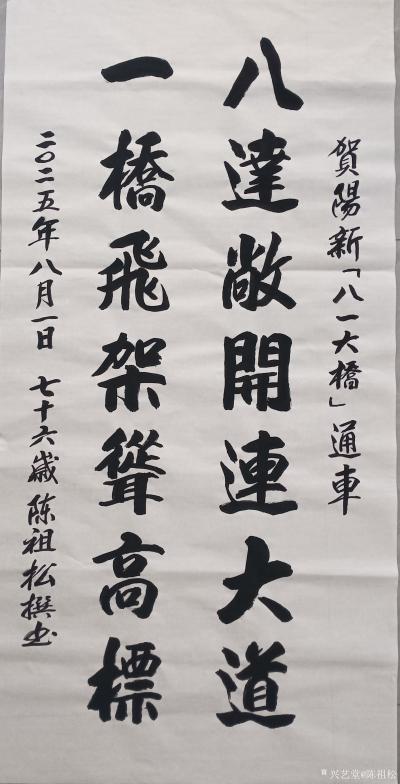 賀陽新「八一大橋」通車
八達敞開連大道
一橋飛架聳高標
二〇二五年八月一日 七十六歲陈祖松撰书
兴艺堂@陈祖松